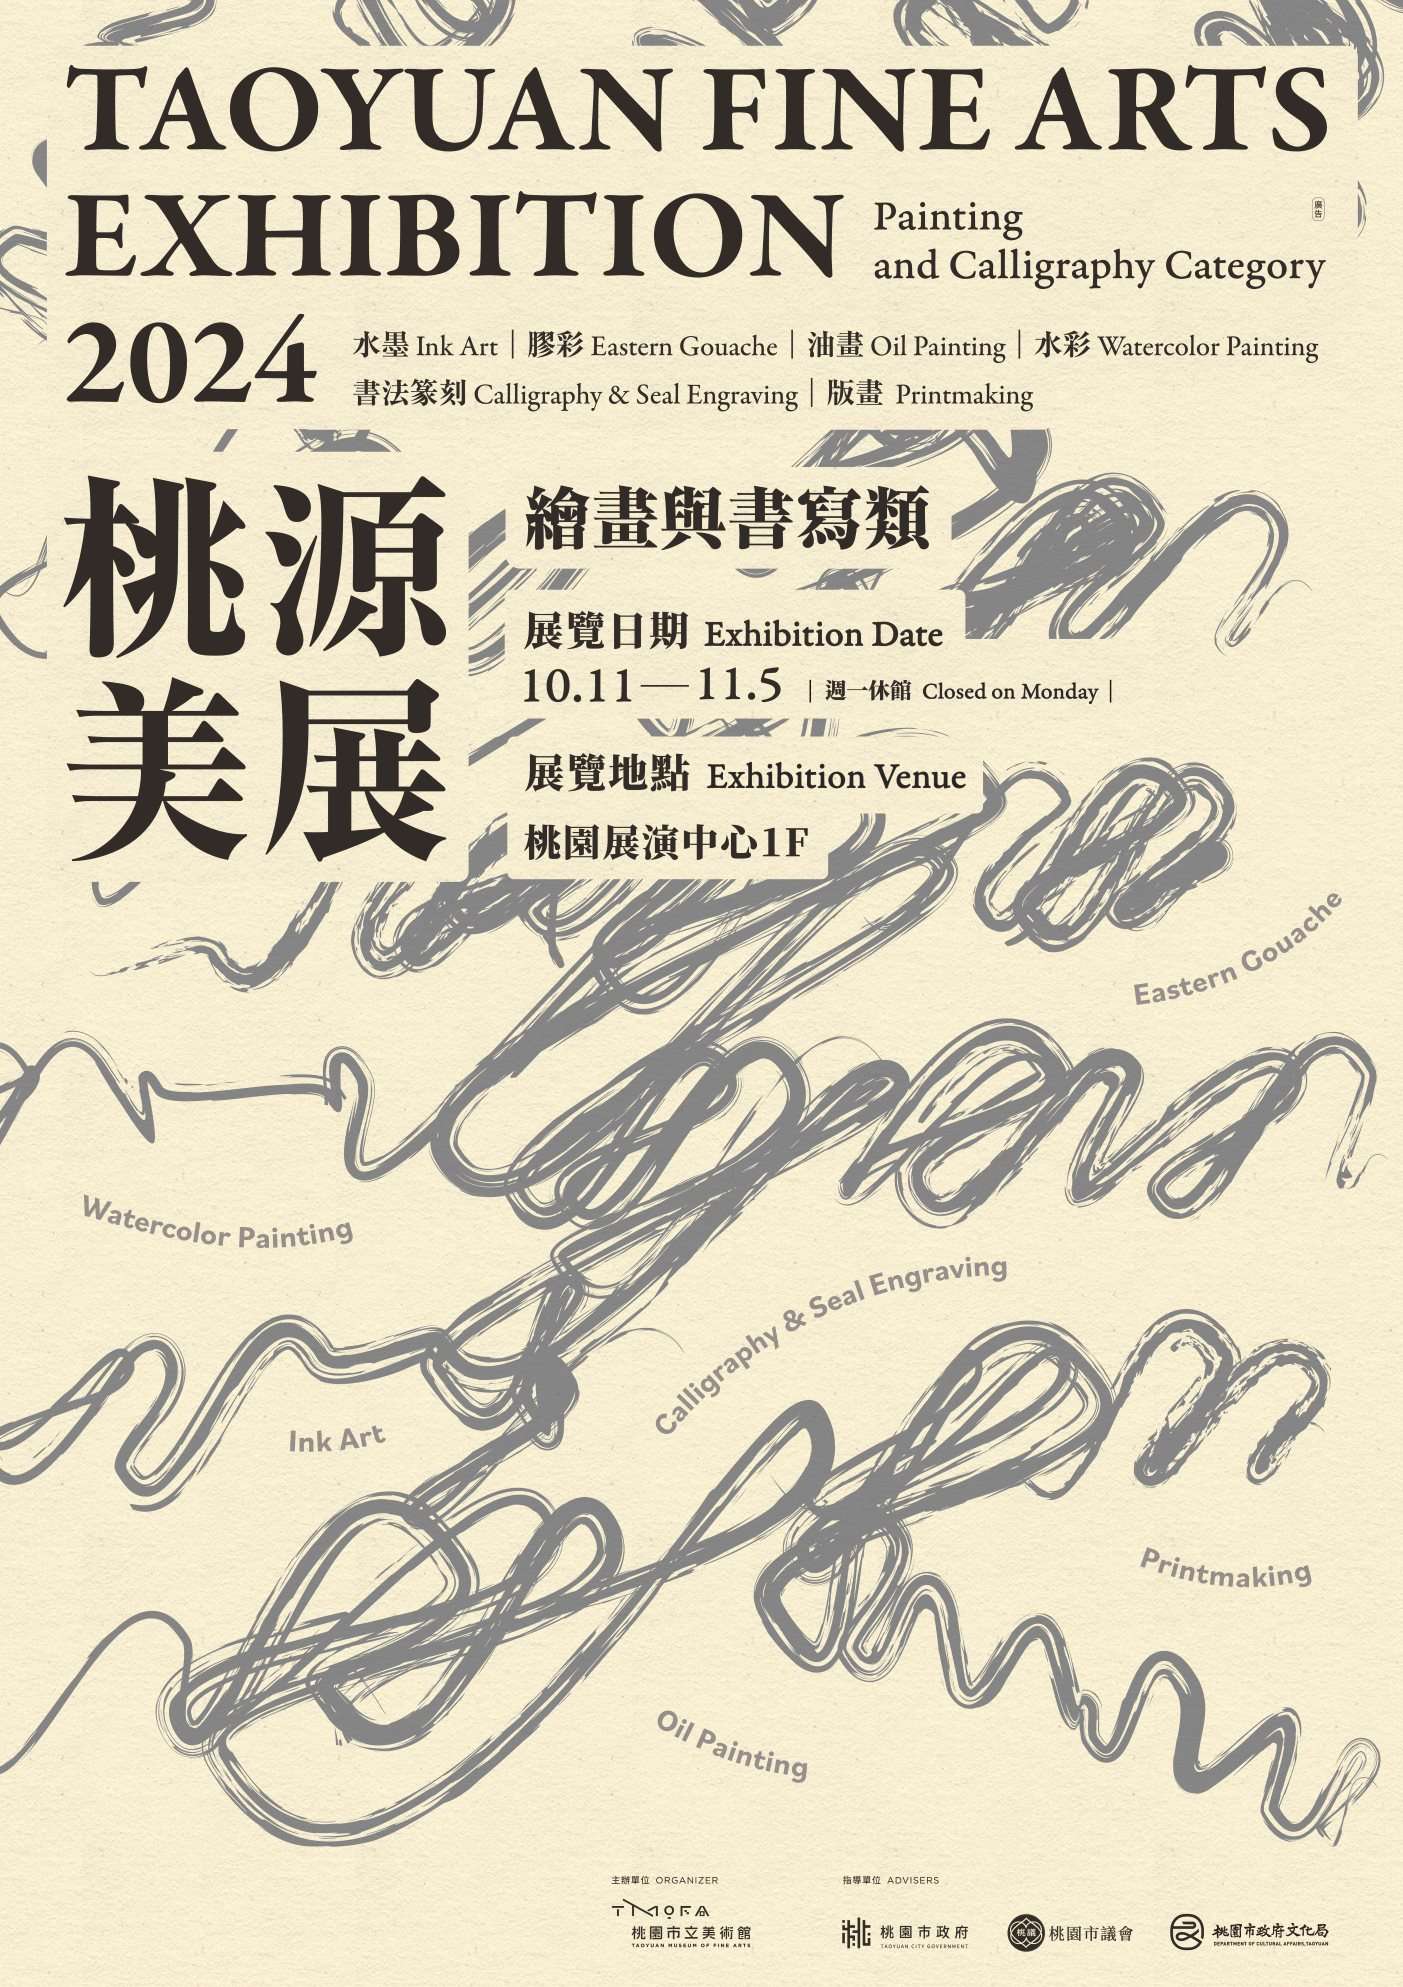 TAOYUAN FINE ARTS
EXHIBITION
Painting
and Calligraphy Category
廣告
2024
水墨 Ink Art｜膠彩 Eastern Gouache｜油畫 Oil Painting｜水彩 Watercolor Painting
書法篆刻 Calligraphy & Seal Engraving｜版畫 Printmaking
桃源
美展
繪畫與書寫類
展覽日期 Exhibition Date
10.11—11.5 ｜週一休館 Closed on Monday｜
展覽地點 Exhibition Venue
桃園展演中心1F
Eastern Gouache
Watercolor Painting
Calligraphy & Seal Engraving
Ink Art
Printmaking
Oil Painting
主辦單位 ORGANIZER
TMOFA
桃園市立美術館
TAOYUAN MUSEUM OF FINE ARTS
指導單位 ADVISERS
桃 桃園市政府
TAOYUAN CITY GOVERNMENT
桃議 桃園市議會
桃園市政府文化局
DEPARTMENT OF CULTURAL AFFAIRS, TAOYUAN